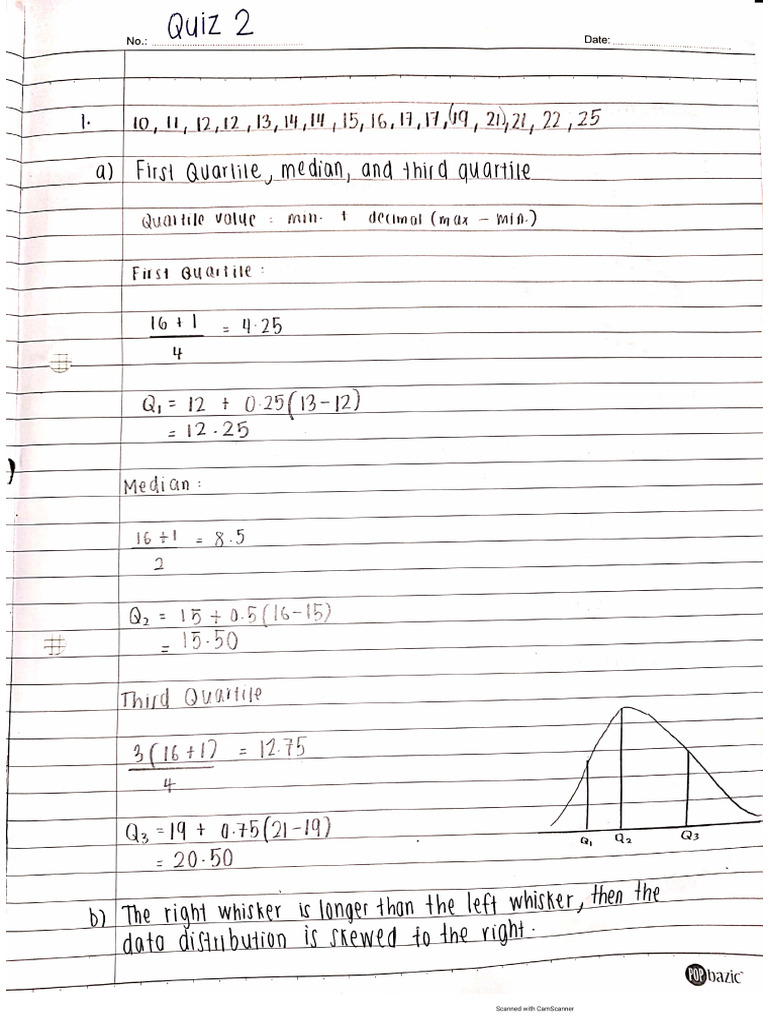 Quiz 2
No.: Date:
1. 10, 11, 12, 12, 13, 14, 14, 15, 16, 17, 17, (19, 21), 21, 22, 25
a) First Quartile, median, and third quartile
Quartile value : min. + decimal (max - min.)
First Quartile :
16 + 1 = 4.25
4
Q₁ = 12 + 0.25(13-12)
= 12.25
)
Median :
16 + 1 = 8.5
2
Q₂ = 15 + 0.5(16-15)
= 15.50
Third Quartile
3(16+1) = 12.75
4
Q₃ = 19 + 0.75(21-19)
= 20.50
Q₁ Q₂ Q₃
b) The right whisker is longer than the left whisker, then the
data distribution is skewed to the right.
POP bazic
Scanned with CamScanner